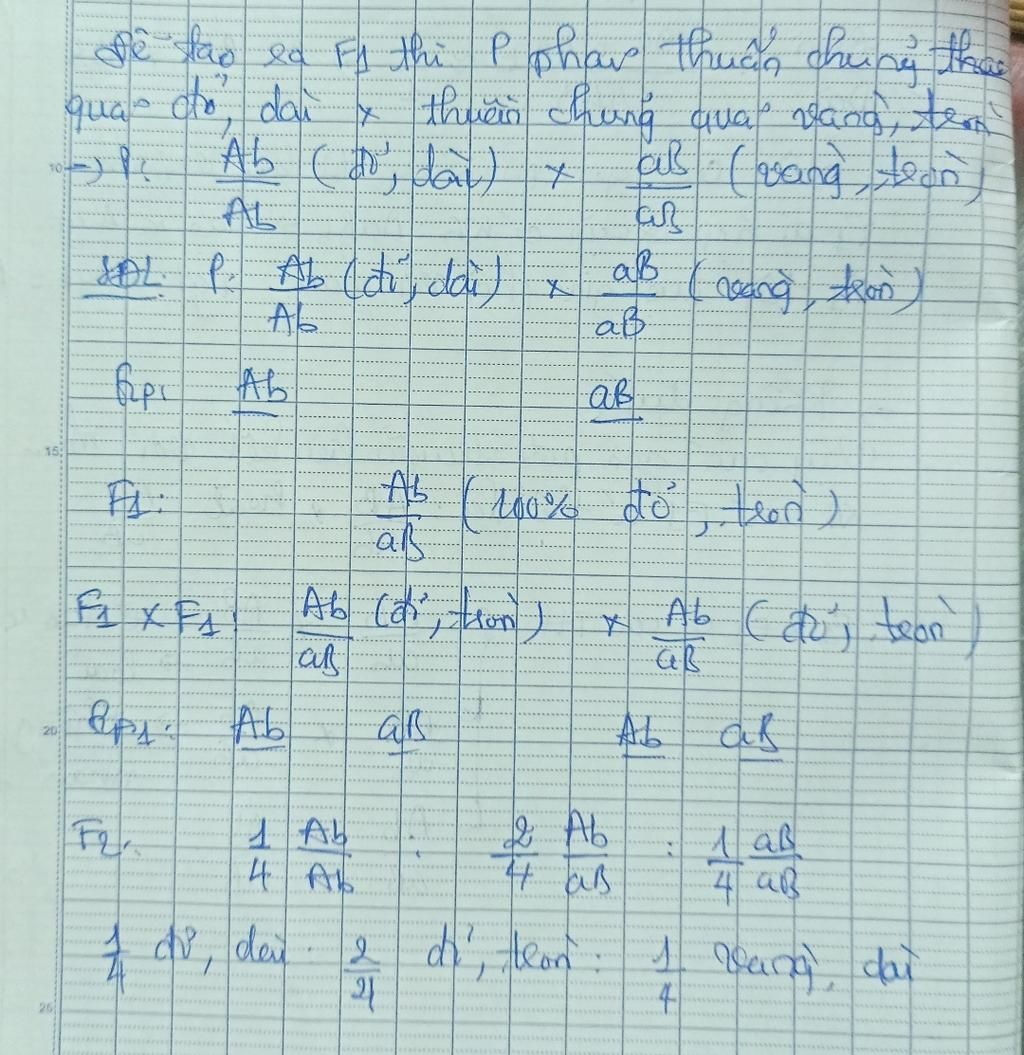 Để tạo ra F1 thì P phải thuần chủng thân
quả đỏ, dài x thuần chủng quả vàng, tròn
10 → P: Ab/Ab (đỏ, dài) x aB/aB (vàng, tròn)
SĐL: P: Ab/Ab (đỏ, dài) x aB/aB (vàng, tròn)
Gp: Ab aB
15
F1: Ab/aB (100% đỏ, tròn)
F1 x F1: Ab/aB (đỏ, tròn) x Ab/aB (đỏ, tròn)
20 GF1: Ab aB Ab aB
F2: 1/4 Ab/Ab : 2/4 Ab/aB : 1/4 aB/aB
1/4 đỏ, dài : 2/4 đỏ, tròn : 1/4 vàng, dài
25